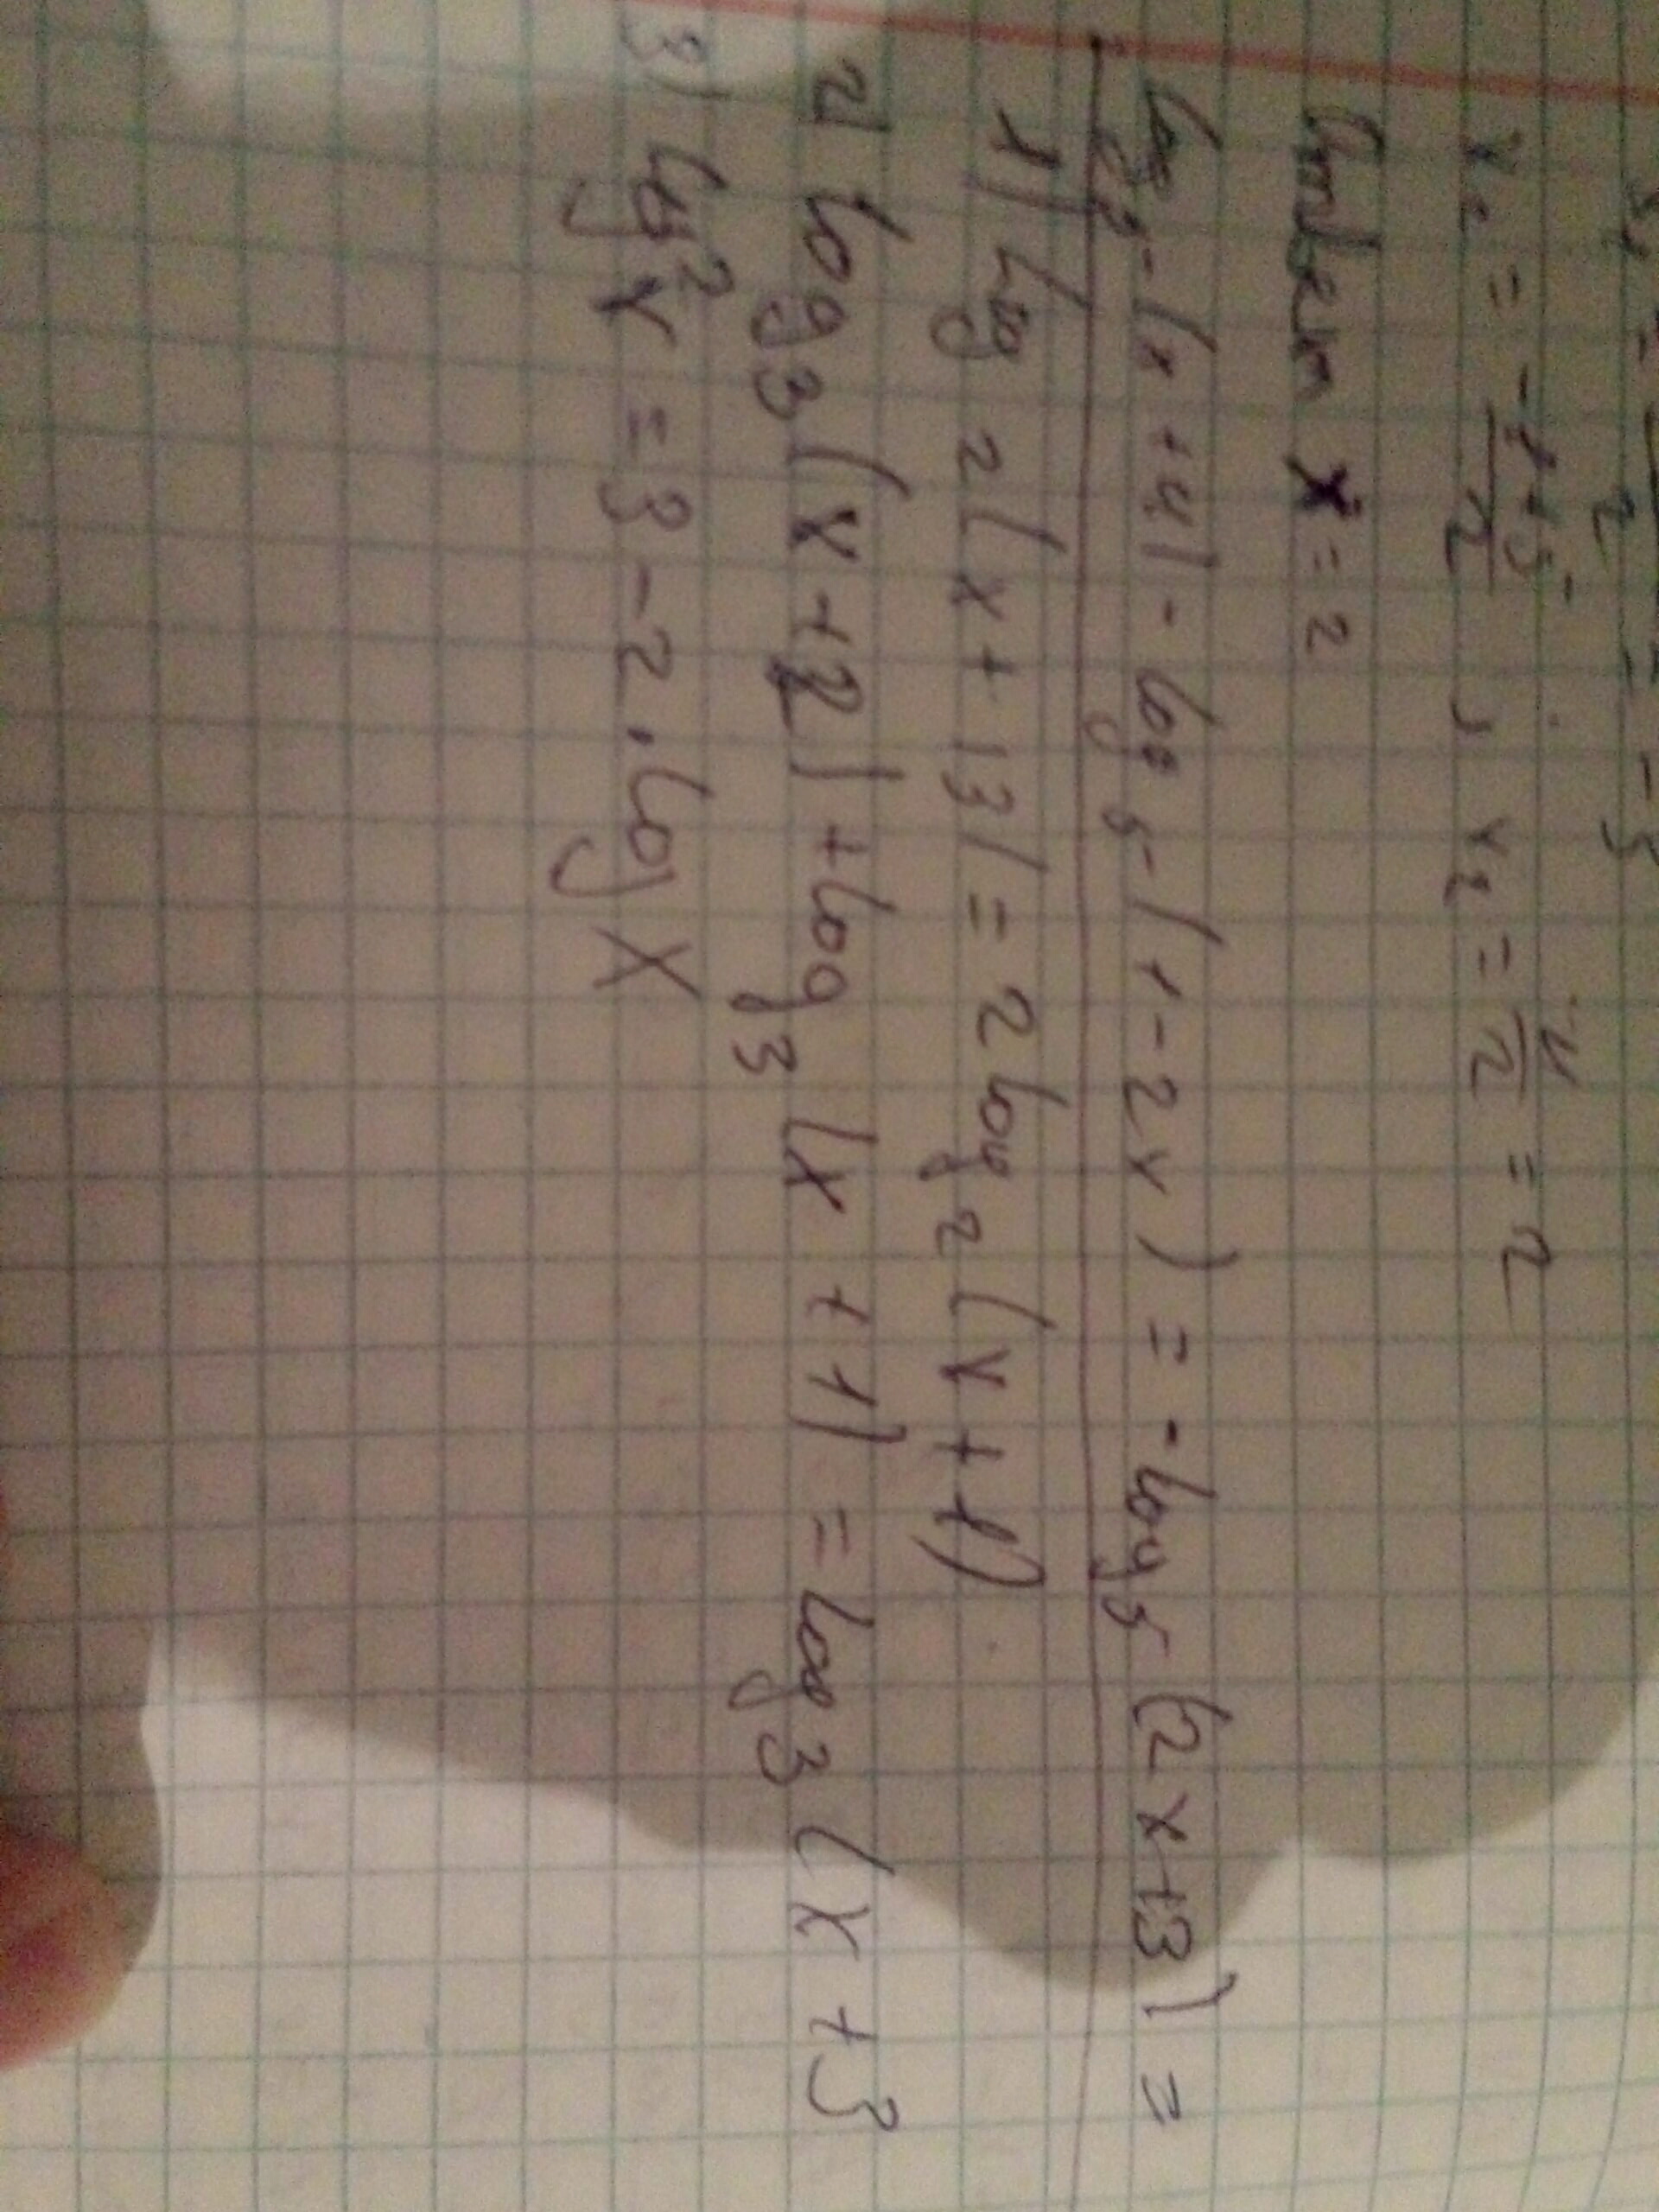 x₂ = -1+5/2 , x₂ = 4/2 = 2
Ответ x = 2
log₅(x+4) - log₅(1-2x) = -log₅(2x+3) =
1) log₂(x+13) = 2log₂(x+1)
2) log₃(x+2) + log₃(x+1) = log₃(x+3
3) lg²x = 3-2·logx